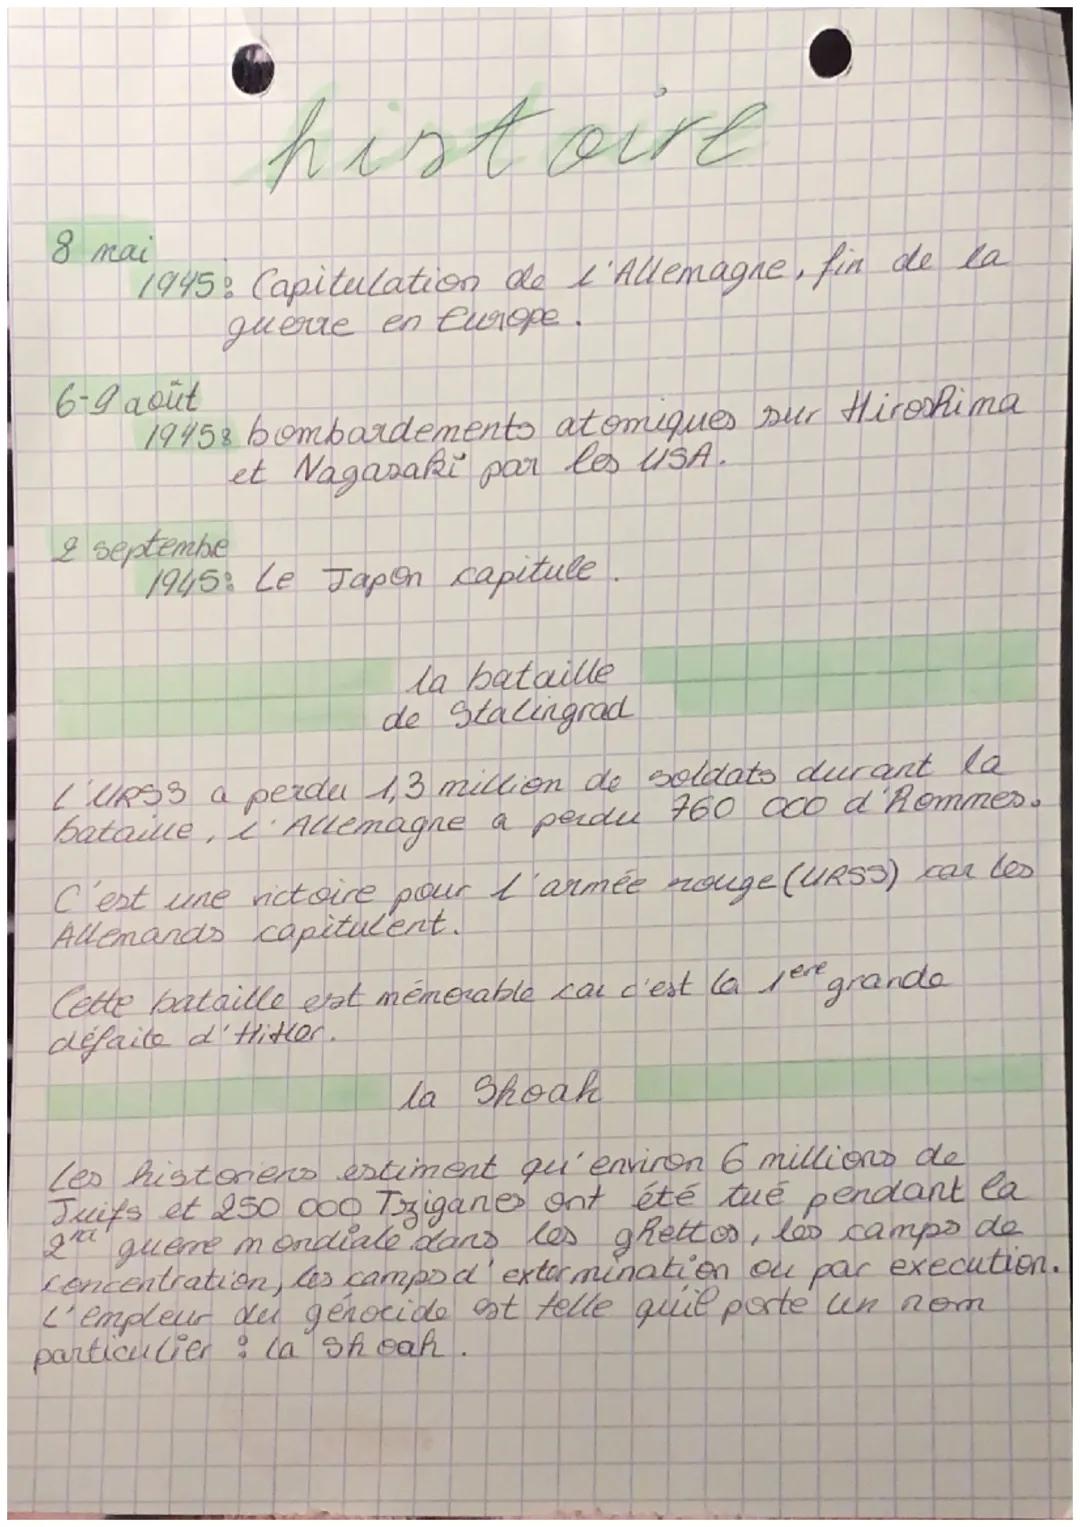 histoire
8 mai
1945: Capitulation de l'Allemagne, fin de la
guerre en Europe.
6-9 août
1945: bombardements atomiques sur Hiroshima
et Nagasaki par les USA.
2 septembe
1945: Le Japon capitule.
la bataille
de Stalingrad
L'URSS a perdu 1,3 million de soldats durant la
bataille, l'Allemagne a perdu 760 000 d'hommes.
C'est une victoire pour l'armée rouge (URSS) car les
Allemands capitulent.
Cette bataille est mémorable car c'est la 1ere grande
défaite d'Hitler.
la Shoah
Les historiens estiment qu'environ 6 millions de
Juifs et 250 000 Tziganes ont été tué pendant la
guerre mondiale dans les ghettos, les camps de
concentration, les camps d'extermination ou par execution.
L'empleur du génocide est telle qu'il porte un nom
particulier : la Shoah.